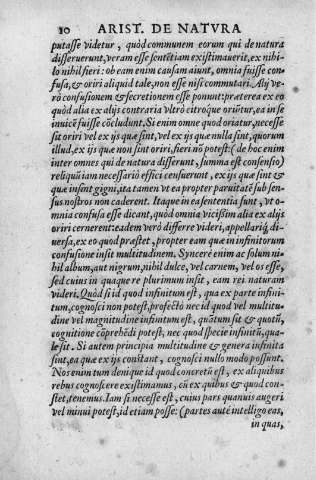 10 ARIST. DE NATVRA
putasse videtur, quòd communem eorum qui de natura
disseruerunt, veram esse sentētiam existimauerit, ex nihi-
lo nihil fieri: ob eam enim causam aiunt, omnia fuisse con-
fusa, & oriri aliquid tale, non esse nisi commutari. Alij ve-
rò confusionem & secretionem esse ponunt: præterea ex eo
quòd alia ex alijs contraria vltrò citroque oriūtur, ea in se
inuicē fuisse cōcludunt. Si enim omne quod oriatur, necesse
sit oriri vel ex ijs quæ sint, vel ex ijs quæ nulla sint, quorum
illud, ex ijs quæ non sint oriri, fieri nō potest: (de hoc enim
inter omnes qui de natura disserunt, summa est consensio)
reliquū iam necessariò effici censuerunt, ex ijs quæ sint &
quæ insint gigni, ita tamen vt ea propter paruitatē sub sen-
sus nostros non caderent. Itaque in ea sententia sunt, vt o-
mnia confusa esse dicant, quòd omnia vicissim alia ex alijs
oriri cernerent: eadem verò differre videri, appellariq́; di-
uersa, ex eo quod præstet, propter eam quæ in infinitorum
confusione insit multitudinem. Syncerè enim ac solum ni-
hil album, aut nigrum, nihil dulce, vel carnem, vel os esse,
sed cuius in quaque re plurimum insit, eam rei naturam
videri. Quòd si id quod infinitum est, qua ex parte infini-
tum, cognosci non potest, profectò nec id quod vel multitu-
dine vel magnitudine infinitum est, quātum sit & quotū,
cognitione cōprehēdi potest, nec quod specie infinitū, qua-
le sit. Si autem principia multitudine & genere infinita
sint, ea quæ ex ijs constant, cognosci nullo modo possunt.
Nos enim tum denique id quod concretū est, ex aliquibus
rebus cognoscere existimamus, cū ex quibus & quod con-
stet, tenemus. Iam si necesse est, cuius pars quanuis augeri
vel minui potest, id etiam posse: (partes autē intelligo eas,
in quas,